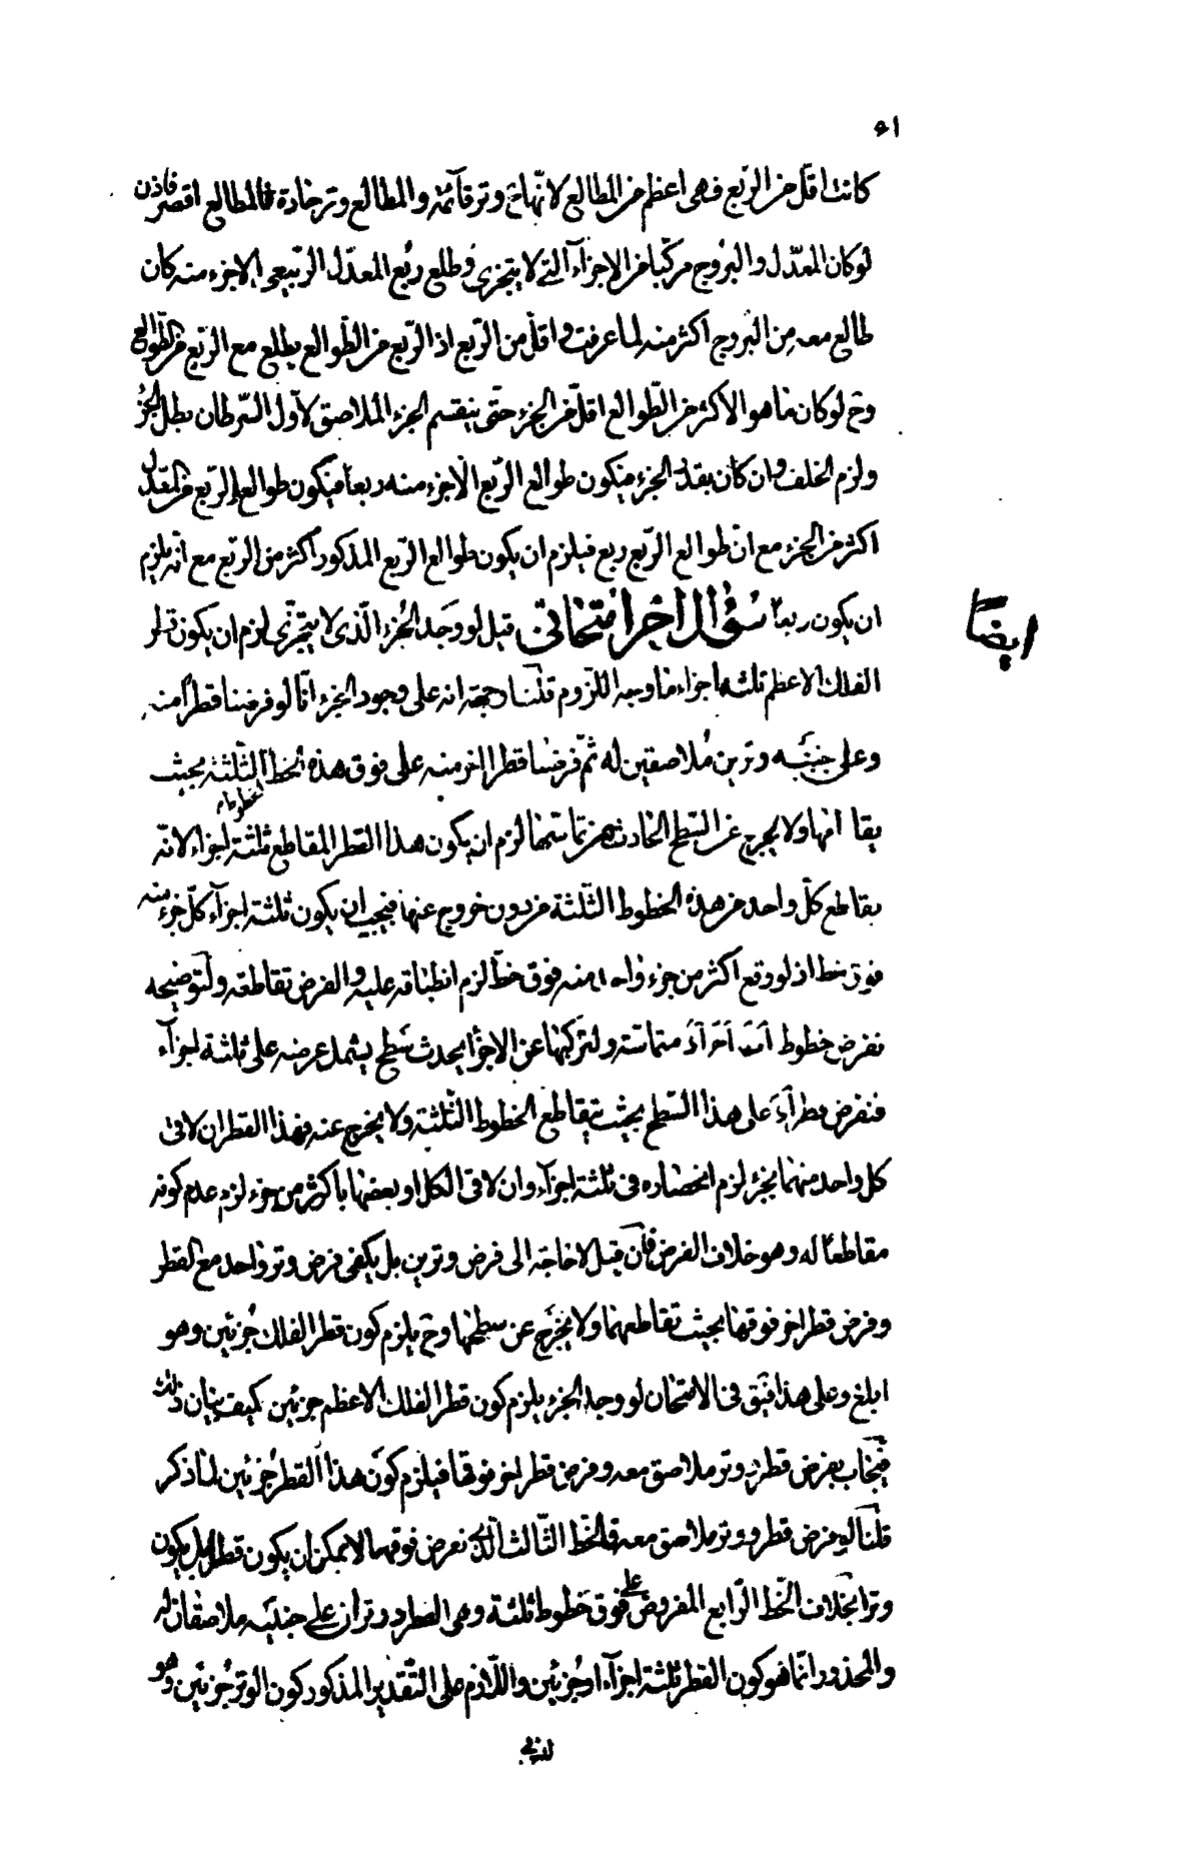 ٥١
كانت اقل من الربع فهى اعظم من المطالع لانها ح وتر قائمة والمطالع وتر حادة فالمطالع اقصر فاذن
لو كان المعدّل والبروج مركبا من الاجزآء التى لا يتجزى وطلع ربع المعدّل الربيعى الا جزء منه كان
طالع معه من البروج اكثر منه لما عرفت واقل من الربع اذ الربع من الطوالع يطلع مع الربع من الطوالع
وح لو كان ما هو الاكثر من الطوالع اقل من الجزء حتى ينقسم الجزء الملاصق لاول السرطان بطل الجزء
ولزم الخلف وان كان بقدر الجزء فيكون طوالع الربع الا جزء منه ربعا فيكون طوالع الربع من المعدل
اكثر من الجزء مع ان طوالع الربع ربع فيلزم ان يكون طوالع الربع المذكور اكثر من الربع مع انه يلزم
ان يكون ربعا سؤال اخر امتحانى قيل لو وجد الجزء الّذى لا يتجزّى لزم ان يكون قطر
ايضا
الفلك الاعظم ثلثة اجزاء ما وجه اللزوم قلنا وجهه انه على وجود الجزء انا لو فرضنا قطرا منه
وعلى جنبيه وترين ملاصقين له ثم فرضنا قطرا اخر منه على فوق هذه الخطوط الثلثة بحيث
يقاطعها ولا يخرج عن السطح الحادث من تماسها لزم ان يكون هذا القطر المقاطع ثلثة اجزاء لانّه
يقاطع كل واحد من هذه الخطوط الثلثة من دون خروج عنها فيجب ان يكون ثلثة اجزآء كلّ جزء منه
فوق خط اذ لو وقع اكثر من جزء واحد منه فوق خط لزم انطباقه عليه والفرض تقاطعه ولتوضيحه
نفرض خطوط متماسّة ولتركبها عن الاجزا يحدث سطح يشمل عرضه على ثلثة اجزآء
فنفرض قطر على هذا السّطح بحيث يتقاطع الخطوط الثلثة ولا يخرج عنه فهذا القطر ان لاقى
كل واحد منهما بجزء لزم انحصاره فى ثلثة اجزآء وان لاقى الكل او بعضها باكثر من جزء لزم عدم كونه
مقاطعا له وهو خلاف الفرض فان قيل لا حاجة الى فرض وترين بل يكفى فرض وتر واحد مع القطر
وفرض قطر اخر فوقها بحيث تقاطعهما ولا يخرج عن سطحها وح يلزم كون قطر الفلك جزئين وهو
ابلغ وعلى هذا فيق فى الامتحان لو وجد الجزء يلزم كون قطر الفلك الاعظم جزئين كيف بيان ذلك
فيجاب بفرض قطر ووتر ملاصق معه وفرض قطر اخر فوقها فيلزم كون هذا القطر جزئين لما ذكر
قلنا لو فرض قطر ووتر ملاصق معه فالخط الثالث الذى نفرض فوقهما لا يمكن ان يكون قطرا بل يكون
وترا بخلاف الخط الرّابع المفروض على فوق خطوط ثلثة وهى القطر ووتران على جنبيه ملاصقان له
والمحذور انّما هو كون القطر ثلثة اجزآء او جزئين واللازم على التقدير المذكور كون الوتر جزئين وهو